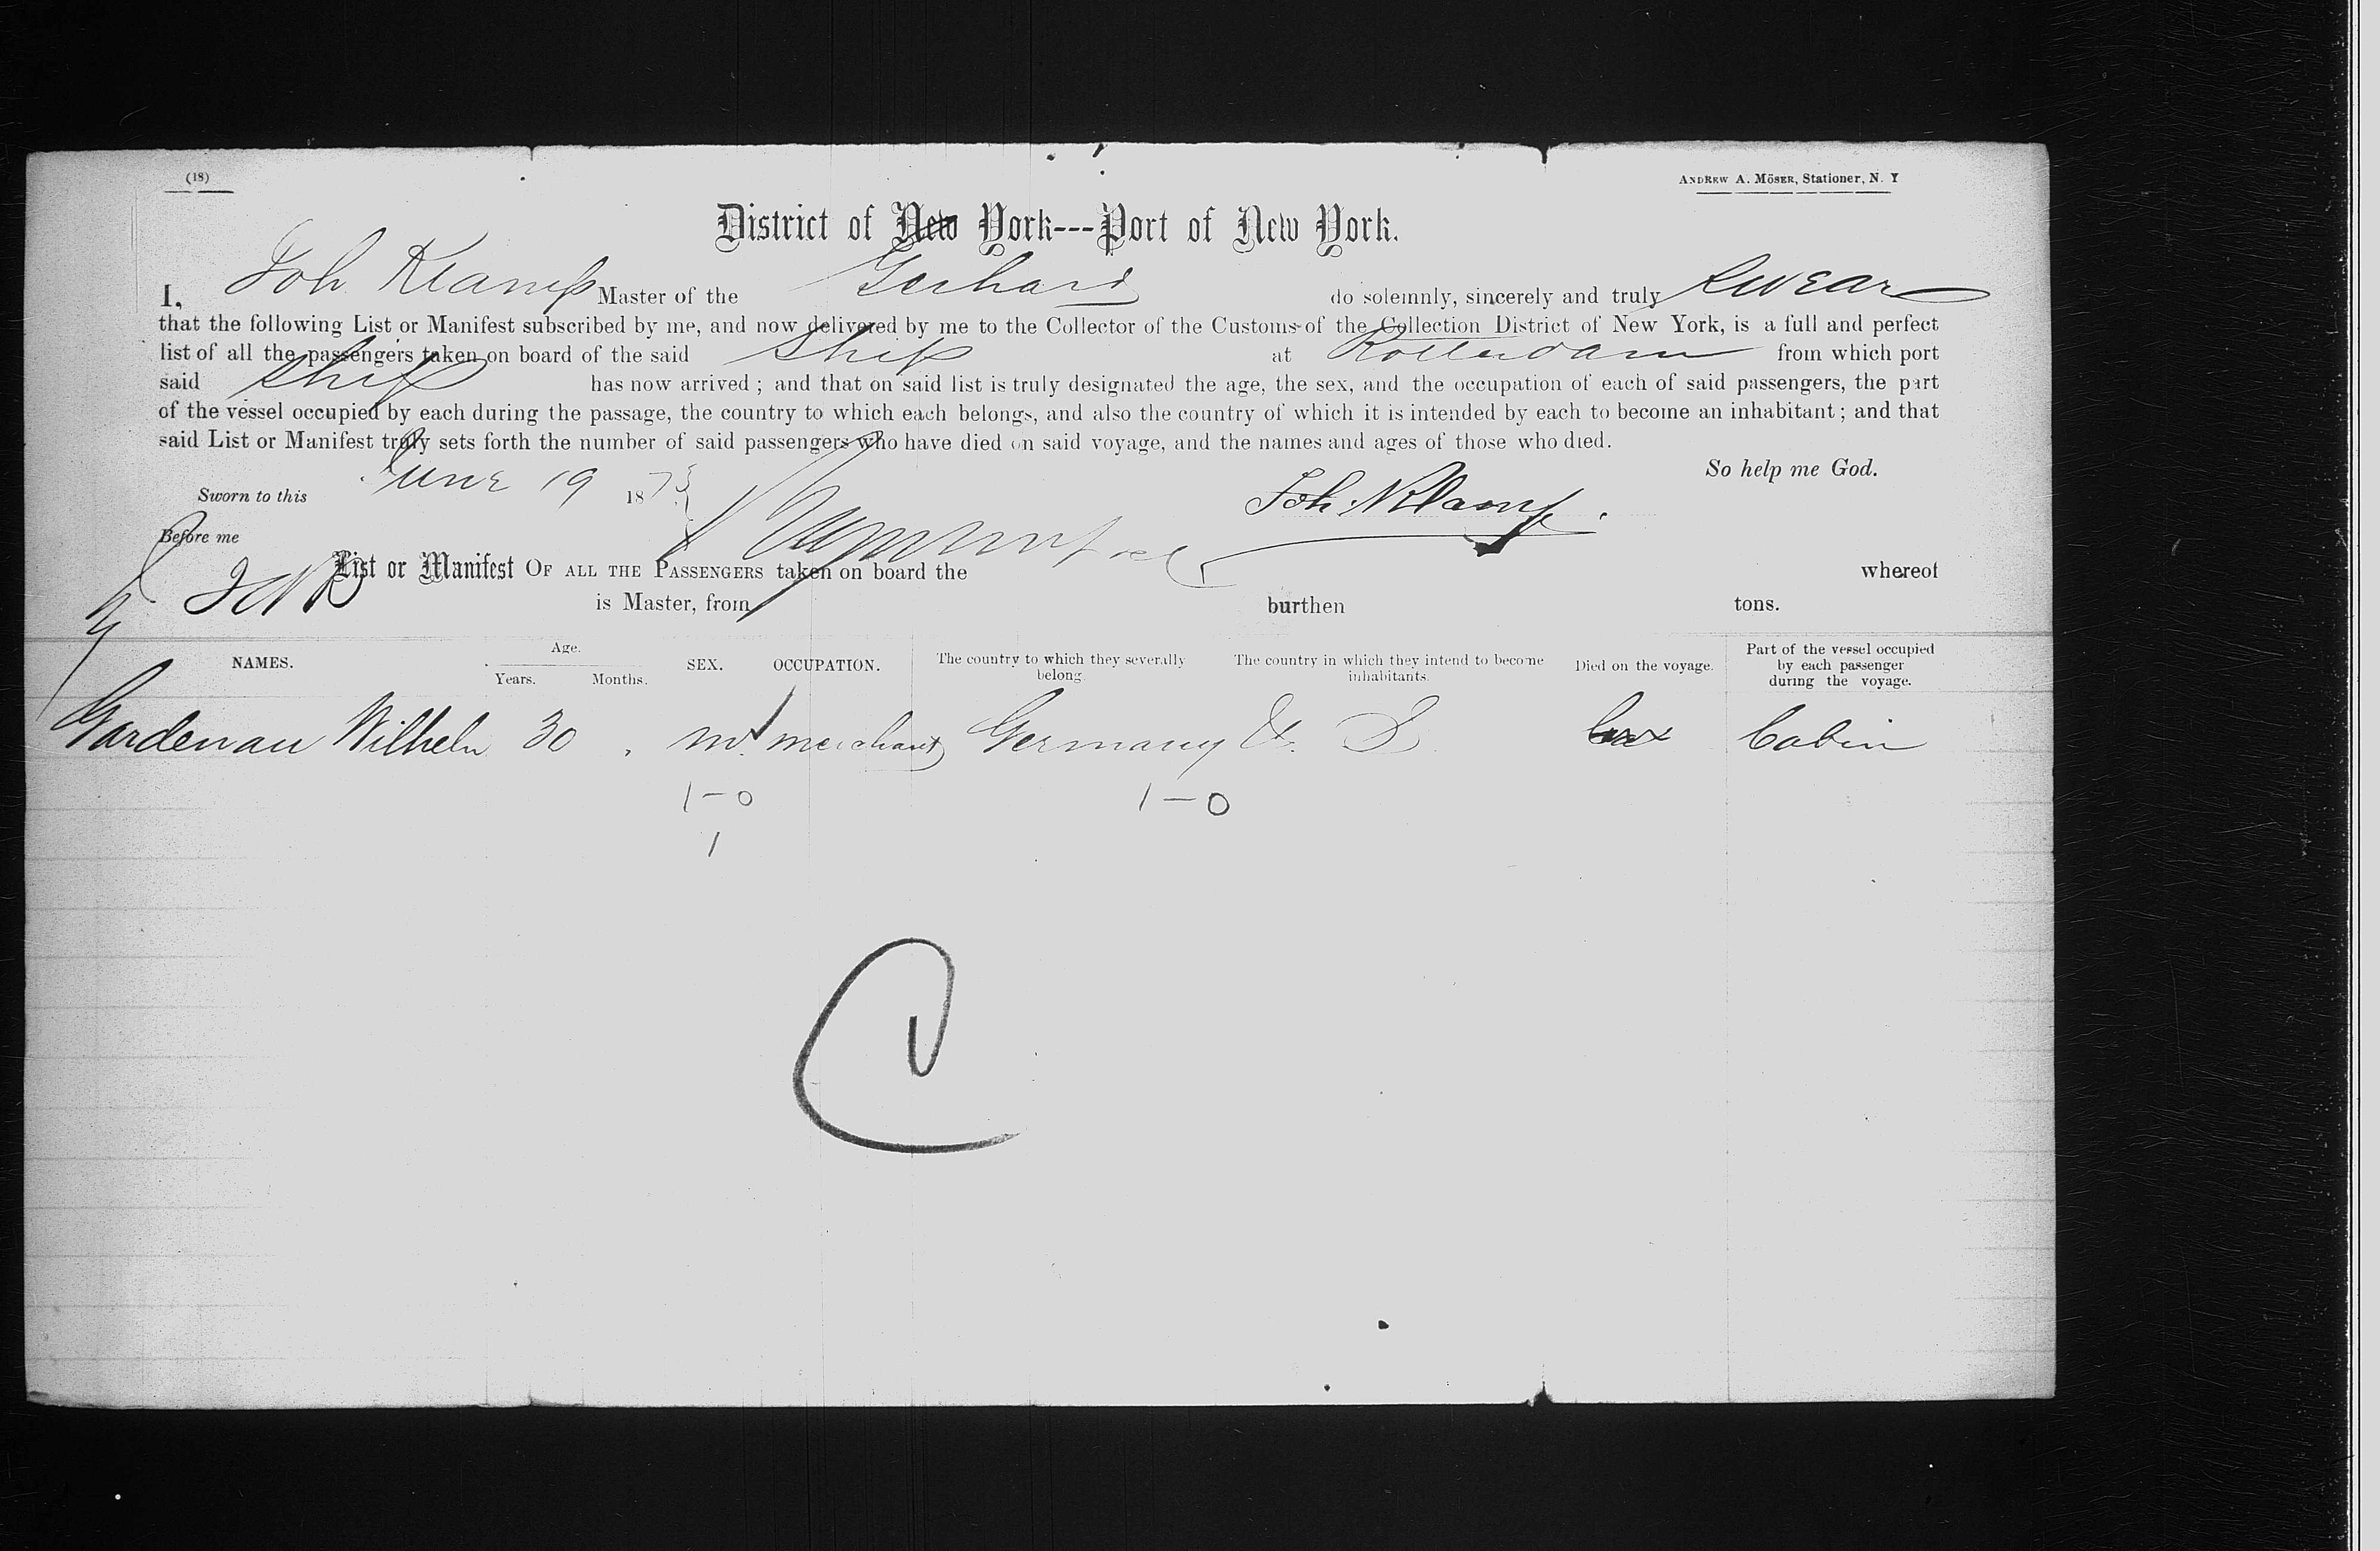 (18)
ANDREW A. MÖSER, Stationer, N. Y
District of New York---Port of New York.
I, Joh Klamp Master of the Gerhard do solemnly, sincerely and truly swear
that the following List or Manifest subscribed by me, and now delivered by me to the Collector of the Customs of the Collection District of New York, is a full and perfect
list of all the passengers taken on board of the said Ship at Rotterdam from which port
said Ship has now arrived; and that on said list is truly designated the age, the sex, and the occupation of each of said passengers, the part
of the vessel occupied by each during the passage, the country to which each belongs, and also the country of which it is intended by each to become an inhabitant; and that
said List or Manifest truly sets forth the number of said passengers who have died on said voyage, and the names and ages of those who died.
So help me God.
Sworn to this June 19 1873
Joh. Klamp.
Before me
List or Manifest OF ALL THE PASSENGERS taken on board the whereof
is Master, from burthen tons.
NAMES. Age. Years. Months. SEX. OCCUPATION. The country to which they severally belong. The country in which they intend to become inhabitants. Died on the voyage. Part of the vessel occupied by each passenger during the voyage.
Gardenau Wilhelm 30 m. merchant Germany U. S. Cabin
1-0 1-0
1
C